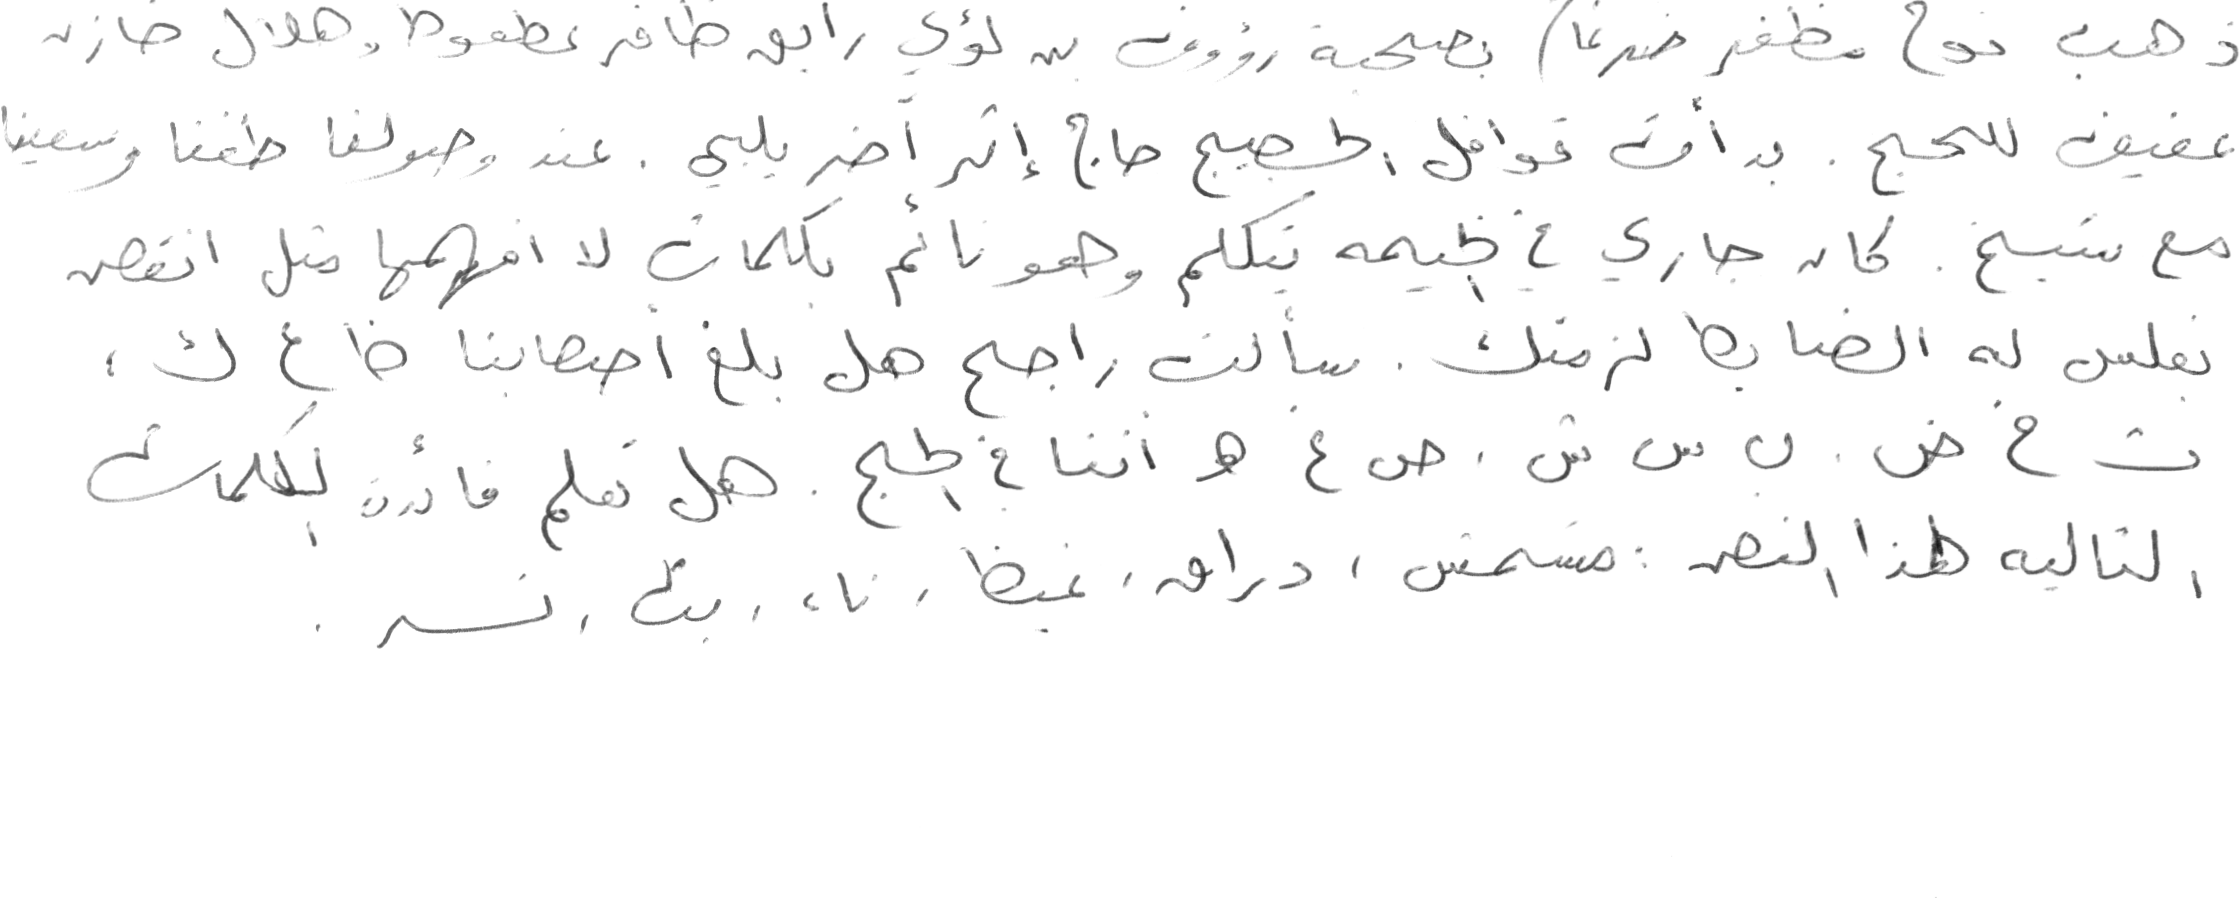 ذهب نوح مظفر ضرغام بصحبة رؤوف بن لؤي رابق ظافر عطعوط و هلال خازن
عفيف للحج . بدأت قوافل الحجيج حاج إثر آخر يلبي . عند وصولنا طفنا وسعينا
مع شيخ . كان جاري في الخيمه يتكلم وهو نائم بكلمات لا افهمها مثل انقص
بفلس له الضابط لزمتك . سألت راجح هل بلغ أصحابنا ظ غ ك ،
ث خ ض . ن س ش ، ص ع ه أننا في الحج . هل تعلم فائدة الكلمات
التاليه لهذا النص : مشمش ، دراق ، غيظ ، ناء ، بث ، نسر .